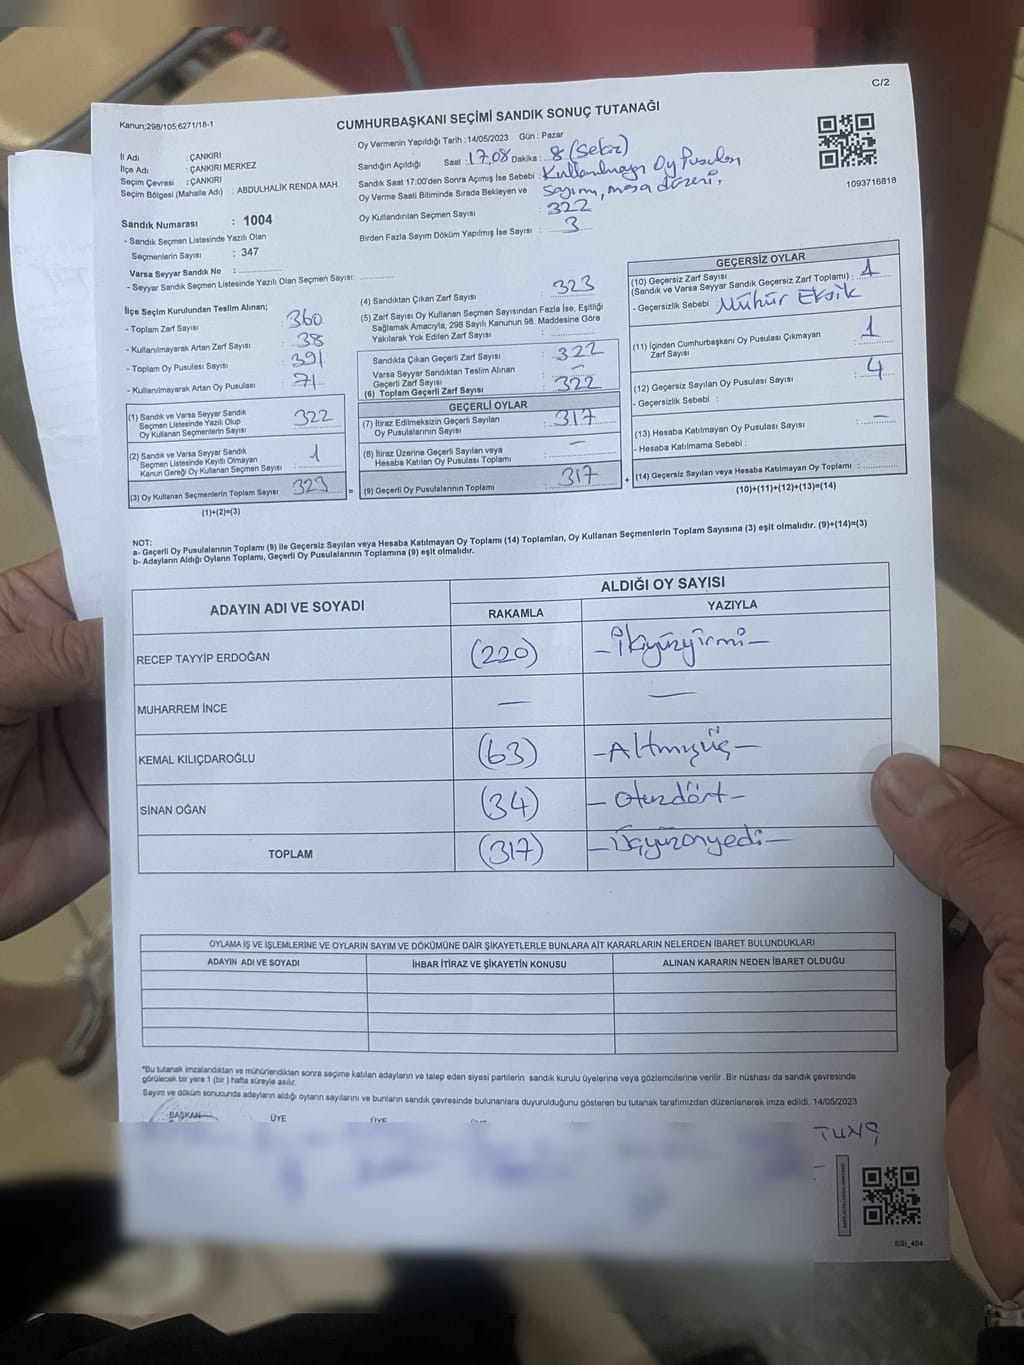 C/2
Kanun:298/105,6271/18-1
CUMHURBAŞKANI SEÇİMİ SANDIK SONUÇ TUTANAĞI
1093716818
İl Adı : ÇANKIRI
İlçe Adı : ÇANKIRI MERKEZ
Seçim Çevresi : ÇANKIRI
Seçim Bölgesi (Mahalle Adı) : ABDULHALİK RENDA MAH.
Sandık Numarası : 1004
- Sandık Seçmen Listesinde Yazılı Olan
Seçmenlerin Sayısı : 347
Varsa Seyyar Sandık No :
- Seyyar Sandık Seçmen Listesinde Yazılı Olan Seçmen Sayısı:
Oy Vermenin Yapıldığı Tarih : 14/05/2023 Gün : Pazar
Sandığın Açıldığı Saat : 17,08 Dakika : 8 (sekiz)
Sandık Saat 17:00'den Sonra Açımış İse Sebebi : Kullanılmayan Oy Pusulası
Oy Verme Saati Bitiminde Sırada Bekleyen ve sayımı, masa düzeni,
Oy Kullandırılan Seçmen Sayısı : 322
Birden Fazla Sayım Döküm Yapılmış İse Sayısı : 3
İlçe Seçim Kurulundan Teslim Alınan;
- Toplam Zarf Sayısı : 360
- Kullanılmayarak Artan Zarf Sayısı : 38
- Toplam Oy Pusulası Sayısı : 391
- Kullanılmayarak Artan Oy Pusulası : 71
(1) Sandık ve Varsa Seyyar Sandık
Seçmen Listesinde Yazılı Olup
Oy Kullanan Seçmenlerin Sayısı : 322
(2) Sandık ve Varsa Seyyar Sandık
Seçmen Listesinde Kayıtlı Olmayan
Kanun Gereği Oy Kullanan Seçmen Sayısı : 1
(3) Oy Kullanan Seçmenlerin Toplam Sayısı : 323 =
(1)+(2)=(3)
(4) Sandıktan Çıkan Zarf Sayısı : 323
(5) Zarf Sayısı Oy Kullanan Seçmen Sayısından Fazla İse, Eşitliği
Sağlamak Amacıyla, 298 Sayılı Kanunun 98. Maddesine Göre
Yakılarak Yok Edilen Zarf Sayısı :
Sandıkta Çıkan Geçerli Zarf Sayısı : 322
Varsa Seyyar Sandıktan Teslim Alınan
Geçerli Zarf Sayısı : –
(6) Toplam Geçerli Zarf Sayısı : 322
GEÇERLİ OYLAR
(7) İtiraz Edilmeksizin Geçerli Sayılan
Oy Pusulalarının Sayısı : 317
(8) İtiraz Üzerine Geçerli Sayılan veya
Hesaba Katılan Oy Pusulası Toplamı : –
(9) Geçerli Oy Pusulalarının Toplamı : 317 +
GEÇERSİZ OYLAR
(10) Geçersiz Zarf Sayısı
(Sandık ve Varsa Seyyar Sandık Geçersiz Zarf Toplamı) : 1
- Geçersizlik Sebebi : Mühür Eksik
(11) İçinden Cumhurbaşkanı Oy Pusulası Çıkmayan
Zarf Sayısı : 1
(12) Geçersiz Sayılan Oy Pusulası Sayısı : 4
- Geçersizlik Sebebi :
(13) Hesaba Katılmayan Oy Pusulası Sayısı : –
- Hesaba Katılmama Sebebi :
(14) Geçersiz Sayılan veya Hesaba Katılmayan Oy Toplamı :
(10)+(11)+(12)+(13)=(14)
NOT:
a- Geçerli Oy Pusulalarının Toplamı (9) ile Geçersiz Sayılan veya Hesaba Katılmayan Oy Toplamı (14) Toplamları, Oy Kullanan Seçmenlerin Toplam Sayısına (3) eşit olmalıdır. (9)+(14)=(3)
b- Adayların Aldığı Oyların Toplamı, Geçerli Oy Pusulalarının Toplamına (9) eşit olmalıdır.
ADAYIN ADI VE SOYADI
ALDIĞI OY SAYISI
RAKAMLA YAZIYLA
RECEP TAYYİP ERDOĞAN (220) – İkiyüzyirmi –
MUHARREM İNCE – –
KEMAL KILIÇDAROĞLU (63) – Altmışüç –
SİNAN OĞAN (34) – Otuzdört –
TOPLAM (317) – Üçyüzonyedi –
OYLAMA İŞ VE İŞLEMLERİNE VE OYLARIN SAYIM VE DÖKÜMÜNE DAİR ŞİKAYETLERLE BUNLARA AİT KARARLARIN NELERDEN İBARET BULUNDUKLARI
ADAYIN ADI VE SOYADI İHBAR İTİRAZ VE ŞİKAYETİN KONUSU ALINAN KARARIN NEDEN İBARET OLDUĞU
*Bu tutanak imzalandıktan ve mühürlendikten sonra seçime katılan adayların ve talep eden siyasi partilerin sandık kurulu üyelerine veya gözlemcilerine verilir .Bir nüshası da sandık çevresinde
görülecek bir yere 1 (bir ) hafta süreyle asılır.
Sayım ve döküm sonucunda adayların aldığı oyların sayılarını ve bunların sandık çevresinde bulunanlara duyurulduğunu gösteren bu tutanak tarafımızdan düzenlenerek imza edildi. 14/05/2023
BAŞKAN ÜYE ÜYE
TUNÇ
SSI_404